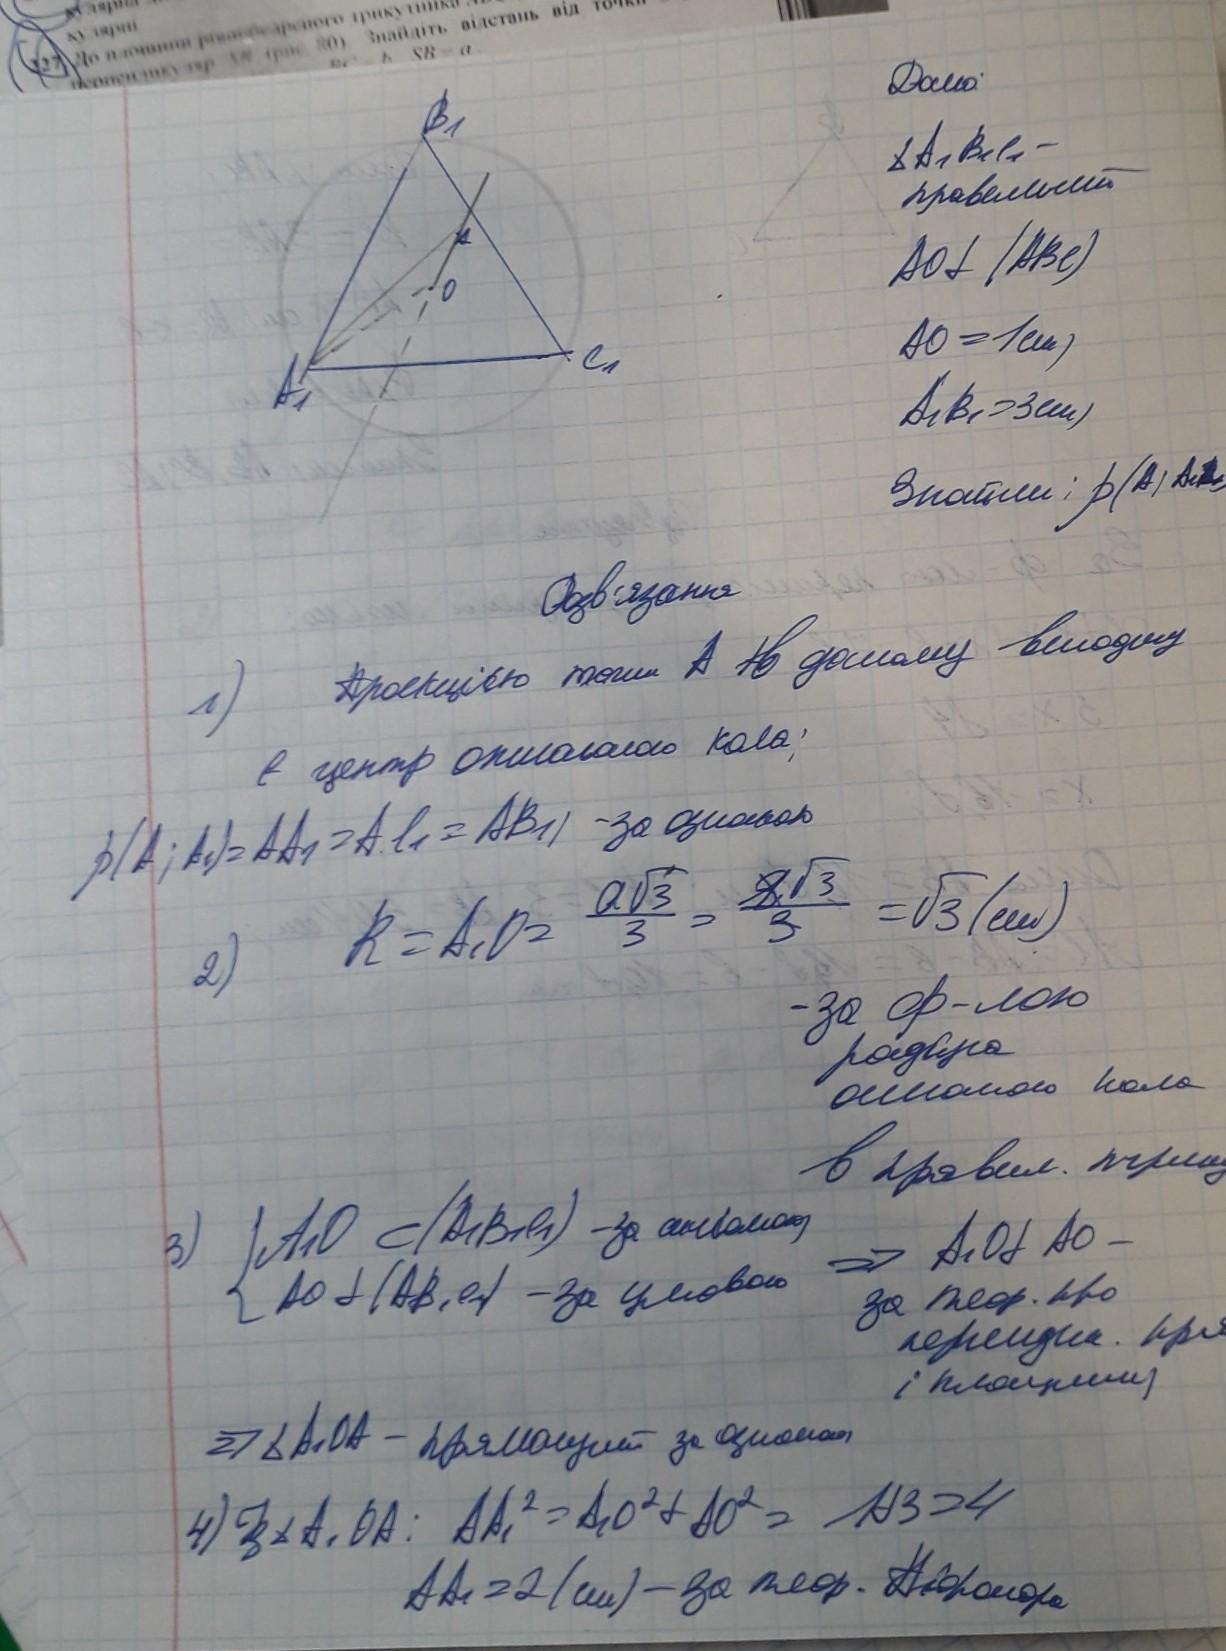 кулярні
327. До площини рівнобедреного трикутника
перпендикуляр SB (рис. 80). Знайдіть відстань від точки
BC = b, SB = a.
Дано:
B₁
Δ A₁B₁C₁ –
правильний
A
O
AO ⊥ (ABC)
AO = 1 см,
A₁
C₁
A₁B₁ = 3 см,
Знайти: ρ(A;
Розв'язання
1) Проекцією точки A в даному випадку
є центр описаного кола;
ρ(A; A₁) = AA₁ = AC₁ = AB₁, – за ознакою
2) R = A₁O = a√3/3 = 3√3/3 = √3 (см)
– за ф-лою
радіуса
описаного кола
в правил.
3) { A₁O ⊂ (A₁B₁C₁) – за
AO ⊥ (AB₁C₁) – за умовою ⇒ A₁O ⊥ AO –
за теор. про
перпенд. пря
і площини,
⇒ Δ A₁OA – прямокутний за ознакою
4) З Δ A₁OA: AA₁² = A₁O² + AO² = 1+3 = 4
AA₁ = 2 (см) – за теор. Піфагора